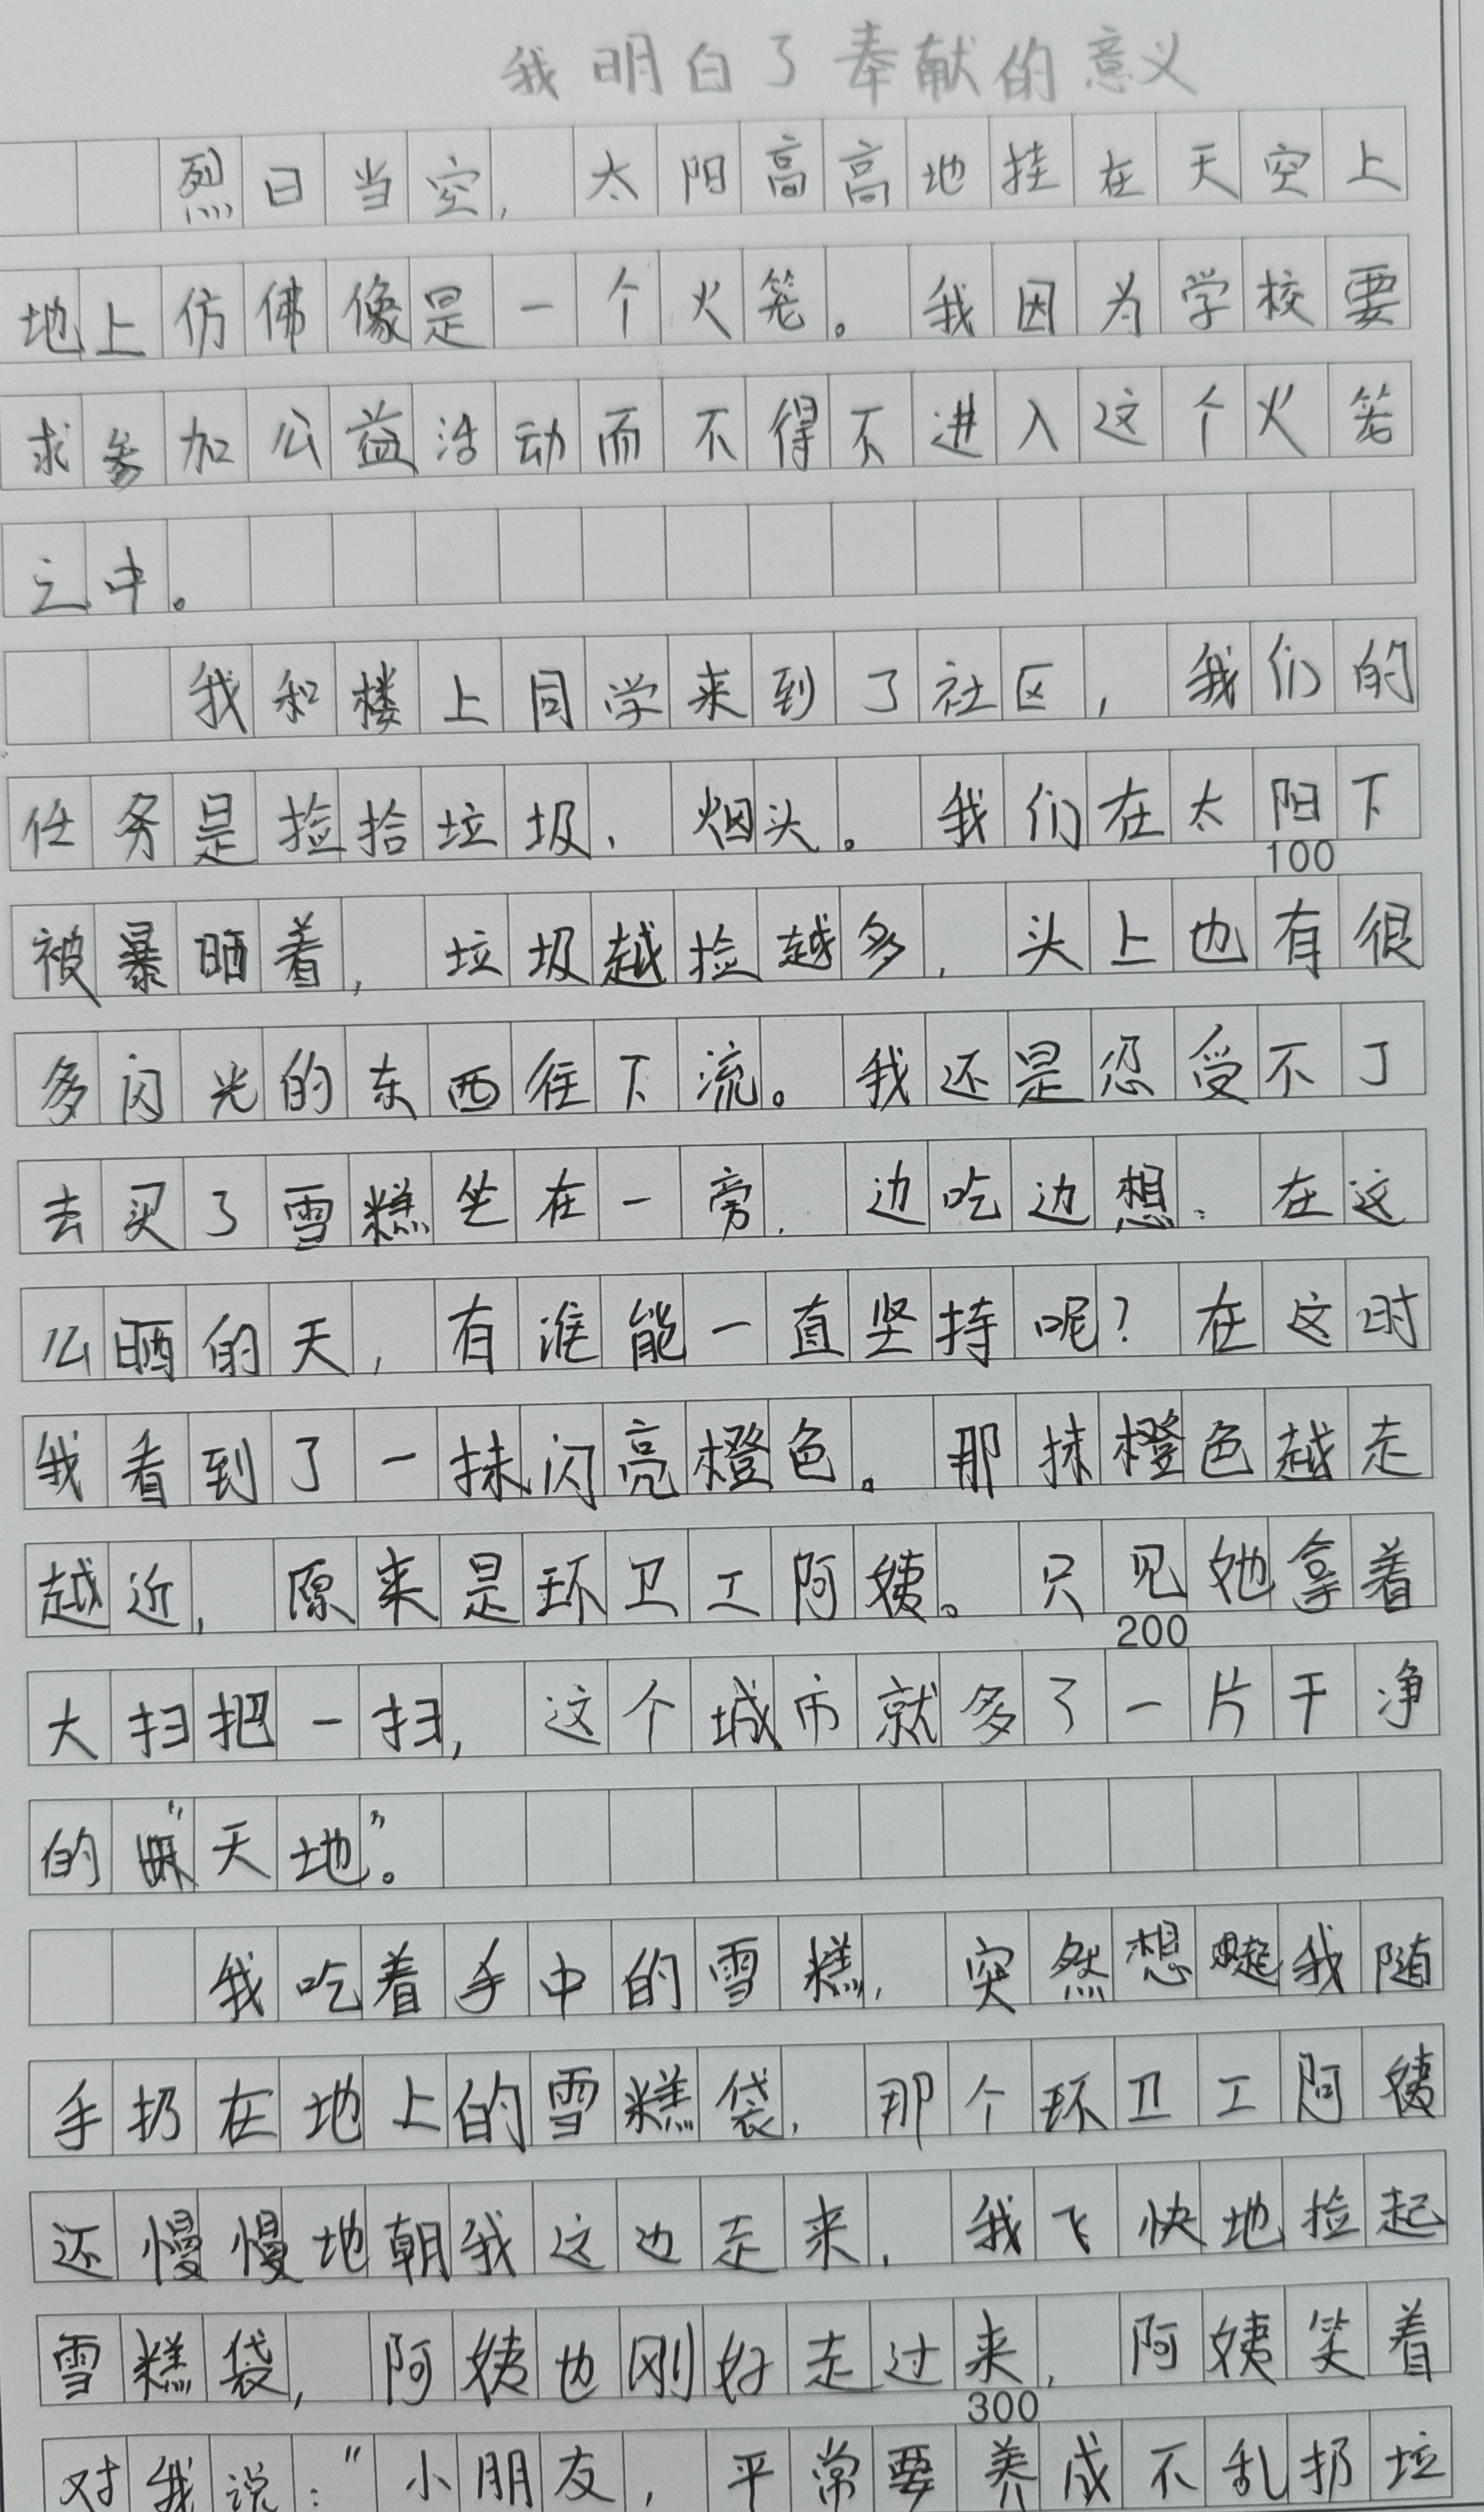 我明白了奉献的意义
烈日当空，太阳高高地挂在天空上
地上仿佛像是一个火笼。我因为学校要
求参加公益活动而不得不进入这个火笼
之中。
我和楼上同学来到了社区，我们的
任务是捡拾垃圾、烟头。我们在太阳下
100
被暴晒着，垃圾越捡越多，头上也有很
多闪光的东西往下流。我还是忍受不了
去买了雪糕坐在一旁，边吃边想：在这
么晒的天，有谁能一直坚持呢？在这时
我看到了一抹闪亮橙色。那抹橙色越走
越近，原来是环卫工阿姨。只见她拿着
200
大扫把一扫，这个城市就多了一片干净
的“天地”。
我吃着手中的雪糕，突然想起我随
手扔在地上的雪糕袋，那个环卫工阿姨
还慢慢地朝我这边走来，我飞快地捡起
雪糕袋，阿姨也刚好走过来，阿姨笑着
300
对我说：“小朋友，平常要养成不乱扔垃